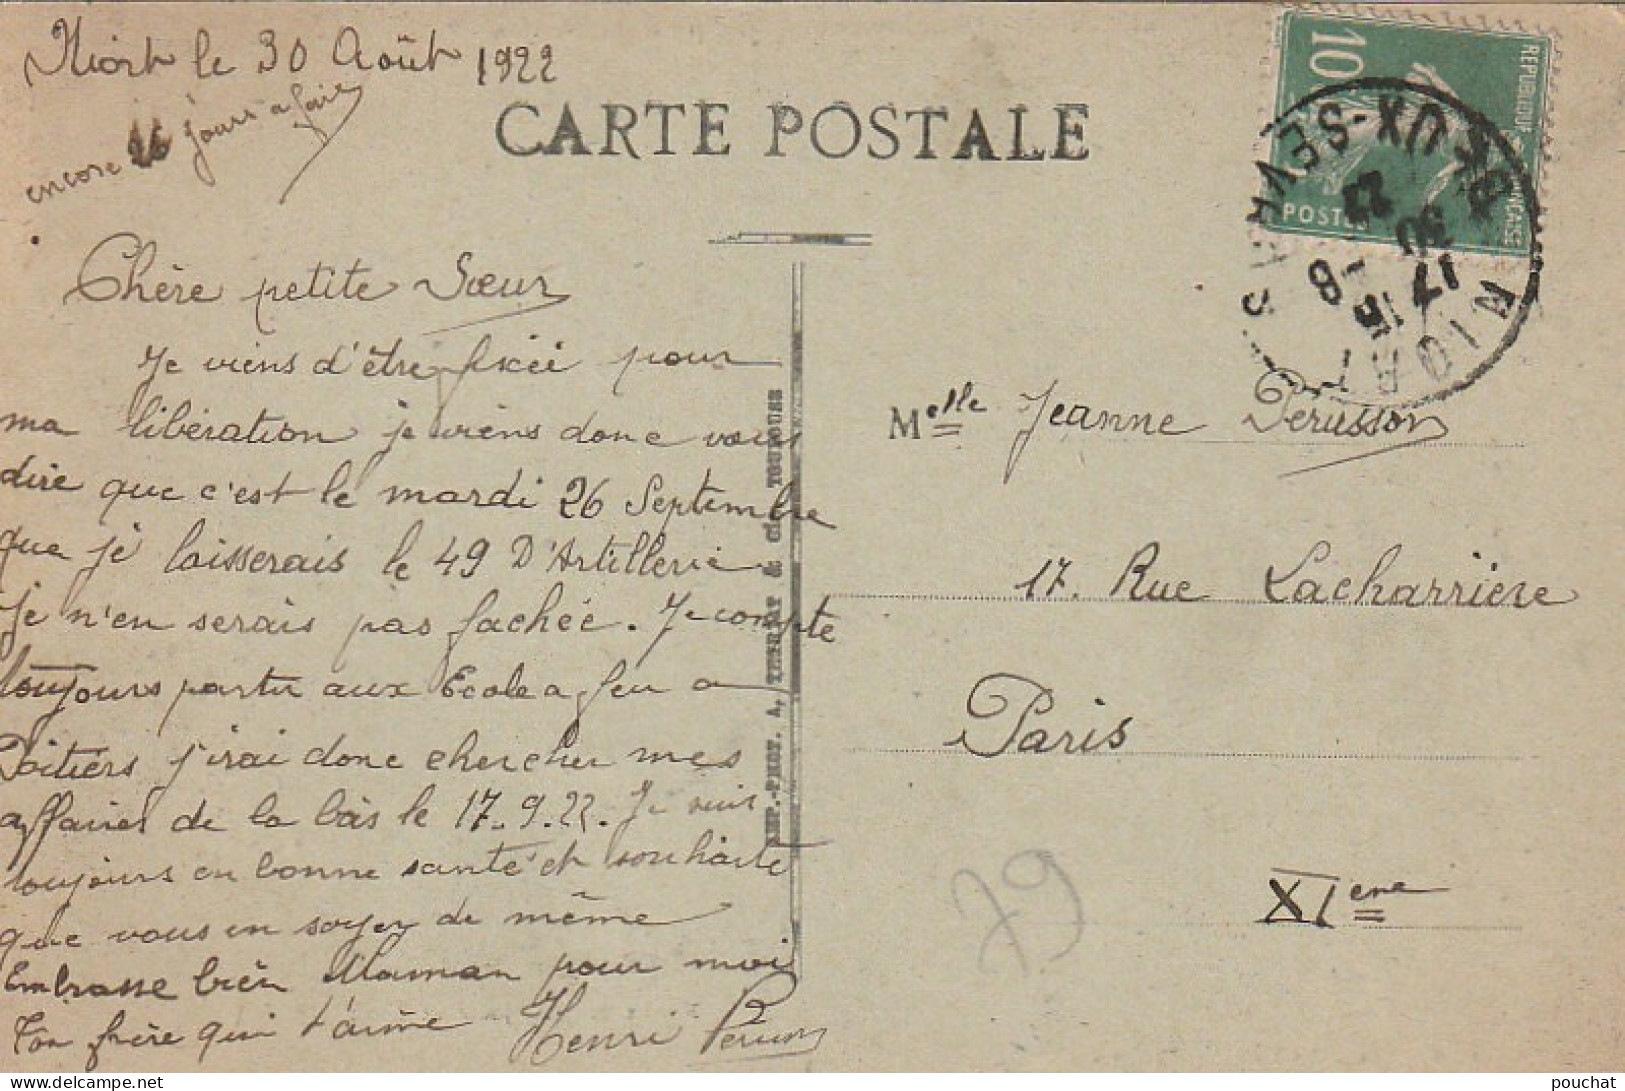 Niort le 30 Août 1922
encore 26 jours a faire
CARTE POSTALE
10
REPUBLIQUE FRANÇAISE
POSTES
NIORT
DEUX-SEVRES
17 15
30 - 8
22
Chère petite Sœur
Je viens d'être fixée pour
ma libération je viens donc vous
dire que c'est le mardi 26 Septembre
que je laisserais le 49 D'Artillerie
Je n'en serais pas fachée. Je compte
toujours partir aux Ecole a feu a
Poitiers j'irai donc chercher mes
affaires de la bas le 17.9.22. Je suis
toujours en bonne santé et souhaite
que vous en soyer de même
Embrasse bien Maman pour moi
Ton frère qui t'aime Henri Perusson
IMP.-PHOT. A. THIRIAT & Cie TOULOUSE
Melle Jeanne Perusson
17. Rue Lacharriere
Paris
XIeme
79
pouchat